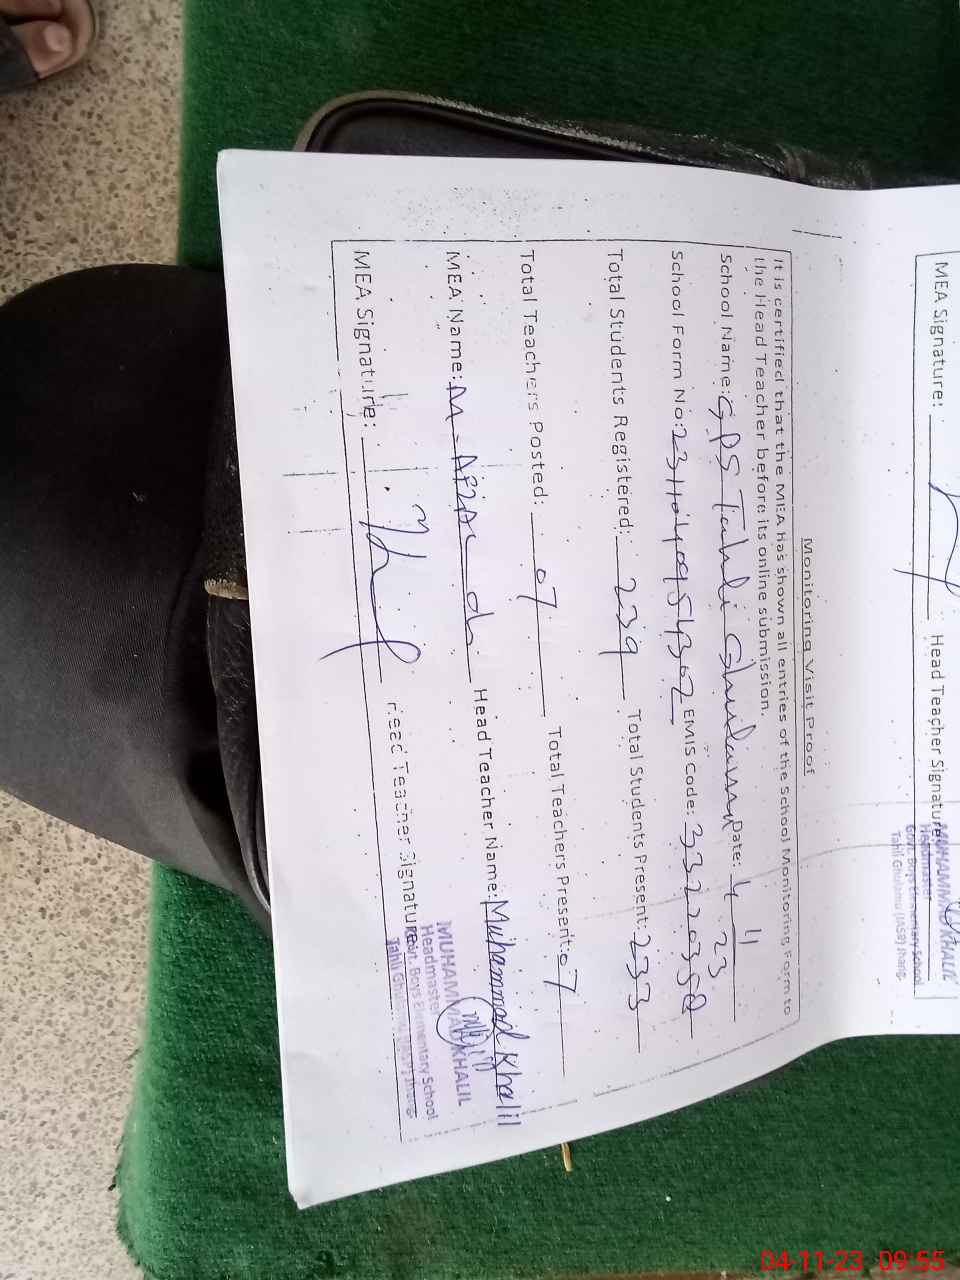 MEA Signature: Head Teacher Signature
MUHAMMAD KHALIL
Headmaster
Govt. Boys Elementary School
Tahli Ghulama (JASP) Jhang.
Monitoring Visit Proof
It is certified that the MEA has shown all entries of the School Monitoring Form to
the Head Teacher before its online submission.
School Name: GPS Tahli Ghulama Date: 4 11 23
School Form No: EMIS Code: 33220358
Total Students Registered: 239 Total Students Present: 233
Total Teachers Posted: 07 Total Teachers Present: 07
MEA Name: M. Head Teacher Name: Muhammad Khalil
MEA Signature: Head Teacher Signature
MUHAMMAD KHALIL
Headmaster
Govt. Boys Elementary School
Tahli Ghulama (JASP) Jhang
04-11-23 09:55